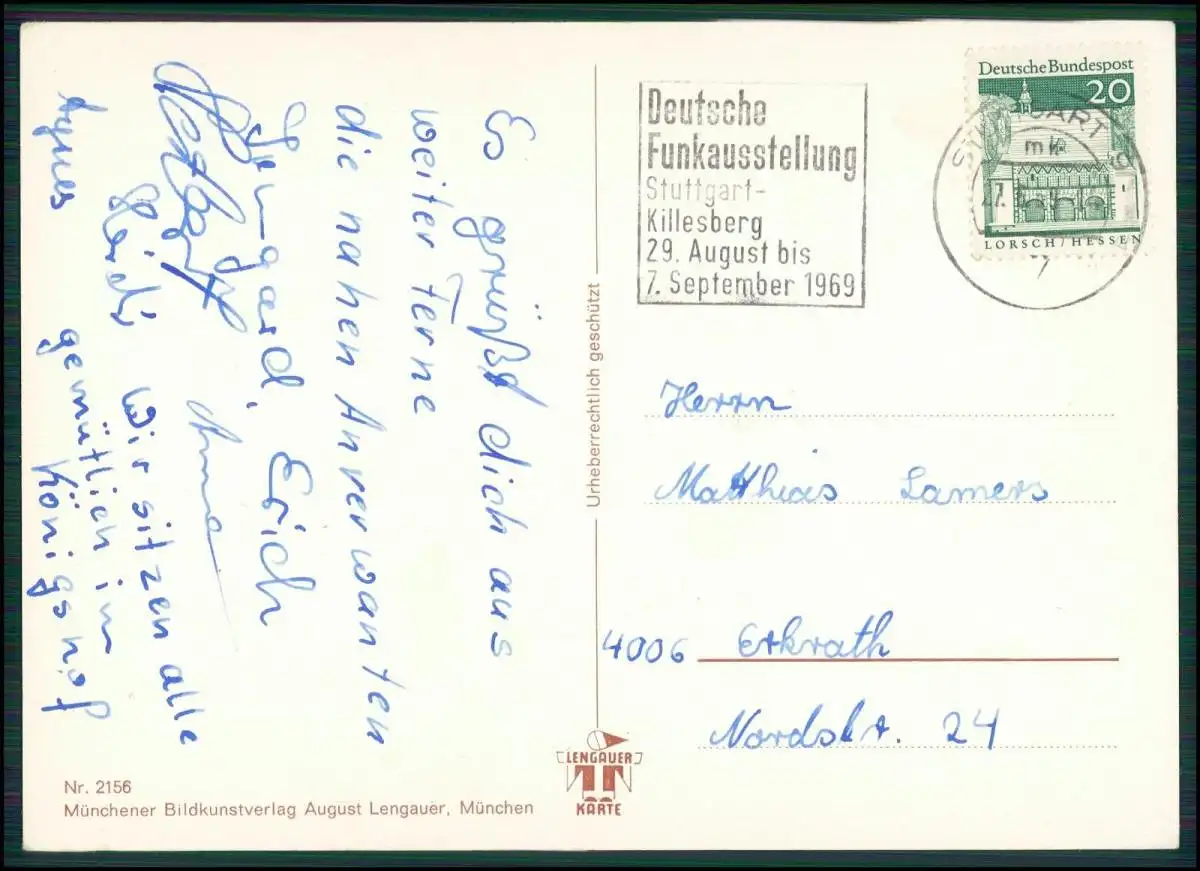 Es grüßt dich aus
weiter Ferne
die nahen Anverwanten
Irmgard, Erich
Anna
Heidi Wir sitzen alle
Agnes gemütlich im
Königshof
Urheberrechtlich geschützt
Deutsche
Funkausstellung
Stuttgart-
Killesberg
29. August bis
7. September 1969
Deutsche Bundespost
20
LORSCH/HESSEN
STUTTGART
mk
7
Herrn
Matthias Lamers
4006 Erkrath
Nordstr. 24
Nr. 2156
Münchener Bildkunstverlag August Lengauer, München
LENGAUER
KARTE